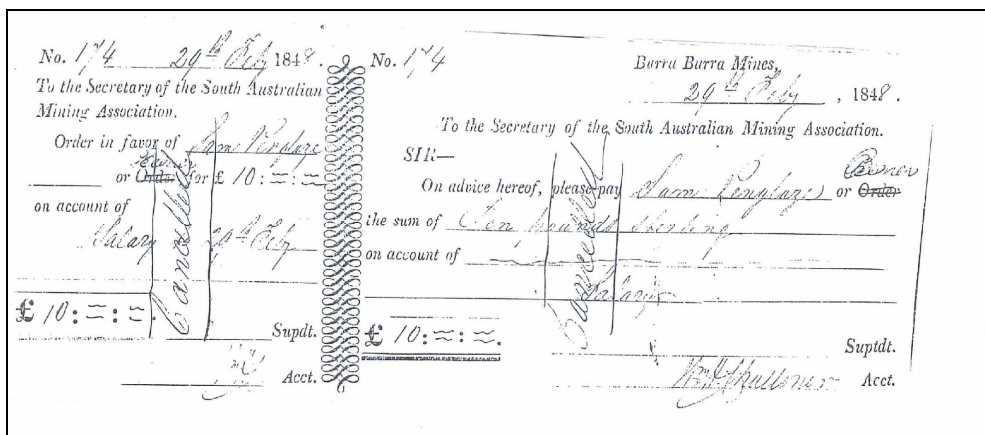 No. 174 29th Feby 1848.
To the Secretary of the South Australian
Mining Association.
Order in favor of Sam Penglaze
Bearer
or Order for £ 10:=:=
on account of
Salary 29th Feby
Cancelled
£ 10:=:=.
Supdt.
Acct.
No. 174
Burra Burra Mines,
29th Feby, 1848.
To the Secretary of the South Australian Mining Association.
SIR—
Bearer
On advice hereof, please pay Sam Penglaze or Order
the sum of Ten pounds sterling
on account of
Salary
Cancelled
£ 10:=:=.
Suptdt.
Wm J Challoner Acct.